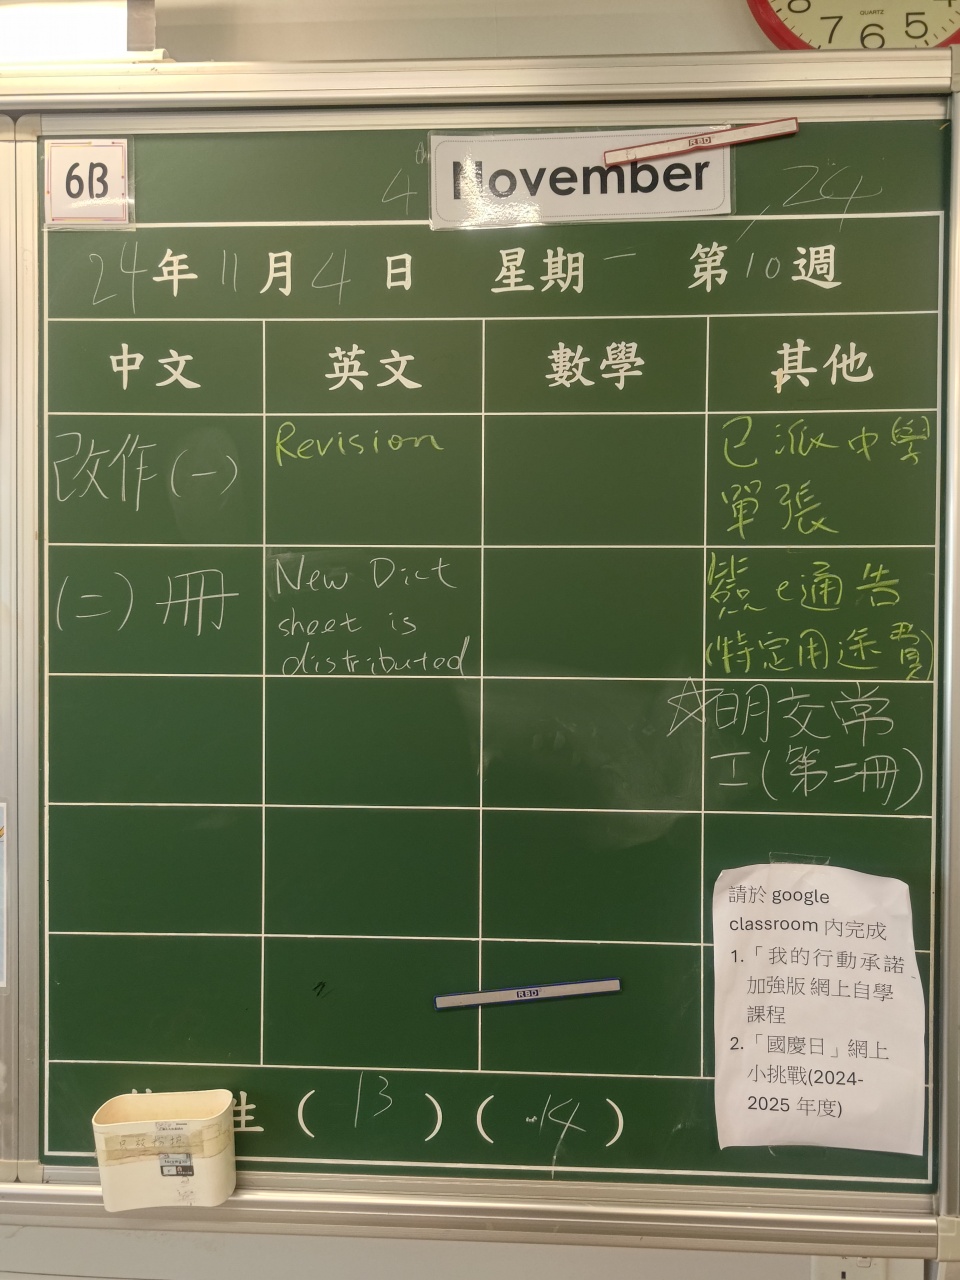 QUARTZ
8 7 6 5 4
6B
4th November, 24
RBD
24年11月4日 星期一 第10週
中文 英文 數學 其他
改作(一)
(二)冊
Revision
New Dict
sheet is
distributed
已派中學
單張
簽e通告
(特定用途費)
☆明交常
I(第二冊)
請於 google
classroom 內完成
1.「我的行動承諾
加強版 網上自學
課程
2.「國慶日」網上
小挑戰(2024-
2025 年度)
RBD
生 ( 13 ) ( 14 )